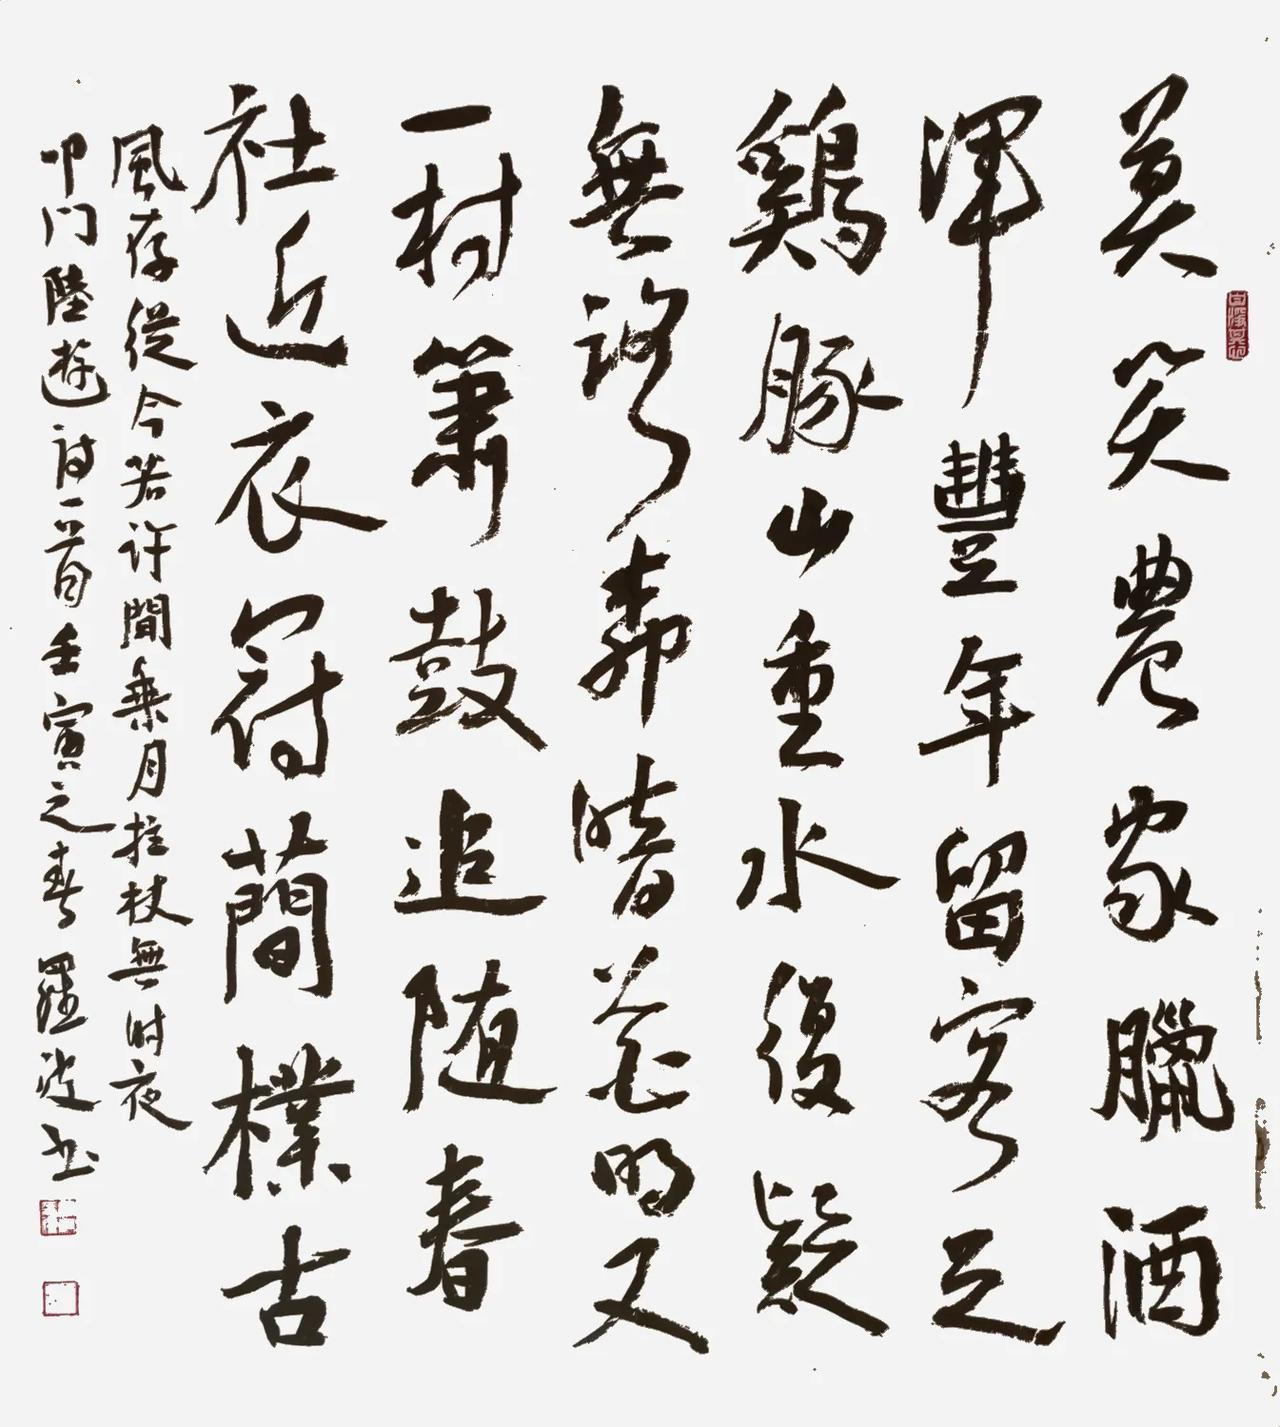 莫笑農家臘酒
渾豐年留客足
鷄豚山重水復疑
無路柳暗花明又
一村簫鼓追随春
社近衣冠簡樸古
風存從今若許閒乗月拄杖無时夜
叩门陸遊诗一首壬寅之春羅波书